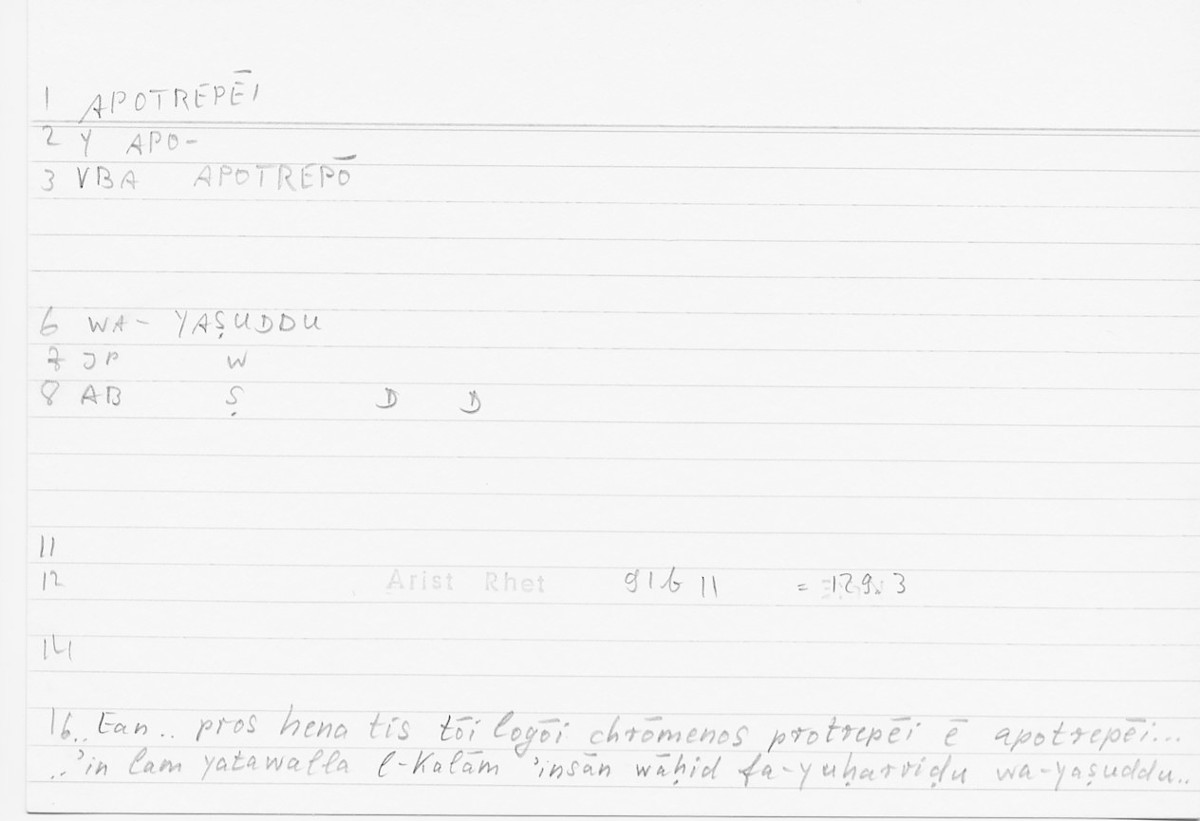 1 APOTREPĒI
2 Y APO-
3 VBA APOTREPŌ
6 WA- YAṢUDDU
7 JP W
8 AB Ṣ D D
11
12 Arist Rhet 91b 11 = 129. 3
14
16.. Ean.. pros hena tis tōi logōi chrōmenos protrepēi ē apotrepēi...
..ʾin lam yatawalla l-Kalām ʾinsān wāḥid fa-yuḥarriḍu wa-yaṣuddu..